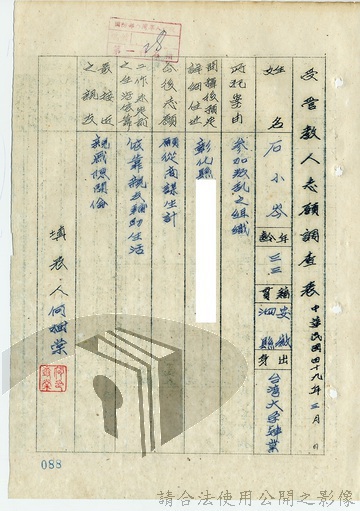 受管教人志願調查表 中華民國四十九年三月 日
姓名 石小岑 年齡 三三 籍貫 安徽泗縣 出身 台灣大學畢業
所犯案由 參加叛亂之組織
開釋後預定詳細住址 彰化縣
今後志願 願從商謀生計
工作未定前之生活依靠 依靠親友輔助生活
最接近之親友 親戚
填表人 何樹榮
第一
28
088
請合法使用公開之影像